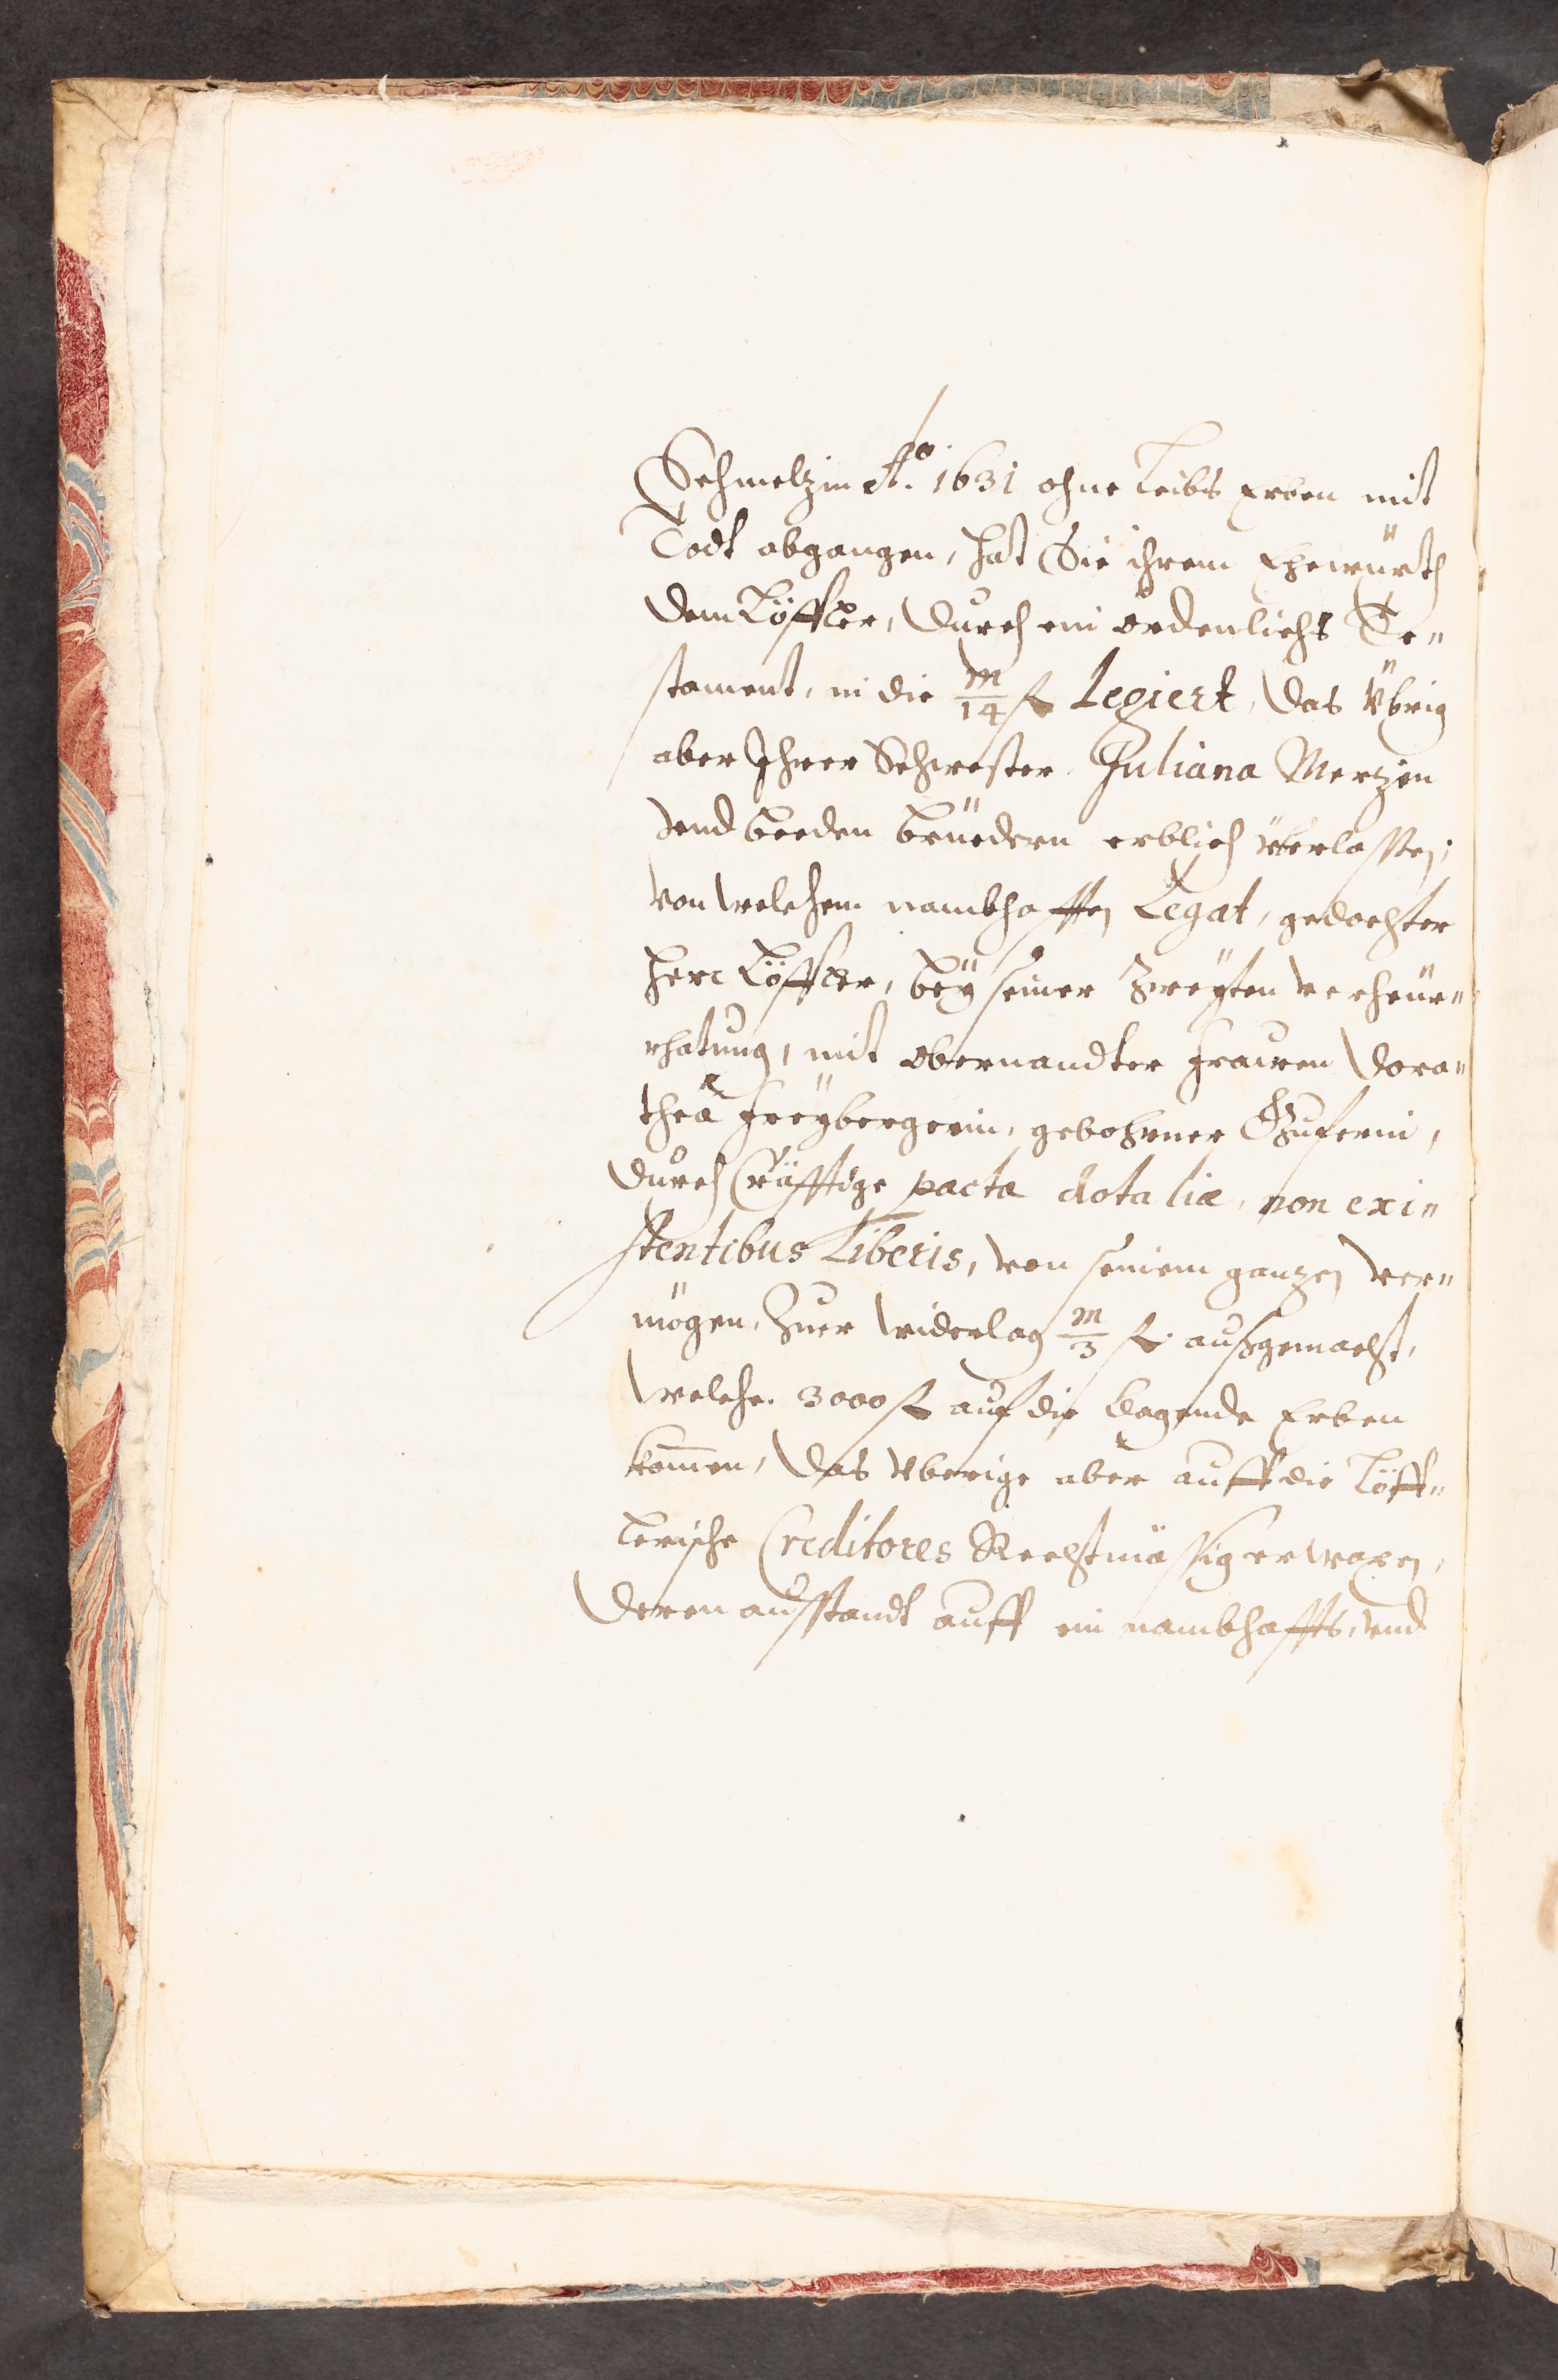 Schmelzin Aᵒ. 1631 ohne Leibs Erben mit
Todt abgangen, hat Sie ihrem Ehewürth
dem Löffler, durch ein ordenlichs Te„
stament, in die m/14 fl Legiert, das Übrig
aber Ihrer Schwester Juliana Merzin
vnd beeden Brüedern erblich überlassen;
von welchem nambhafften Legat, gedachter
Herr Löffler, bey seiner Zweÿten verheür„
rhatung, mit obernandter Frawen Dora„
theâ Freÿbergerin, gebohrner
durch Cräfftige pacta dotalia, non exi„
stentibus Liberis, von seinem ganzen ver„
mögen, Zuer widerlag m/3 fl. außgemacht,
welche 3000 fl auf die Clagende Erben
kom̄en, das vberige aber auff die Löff„
lerische Creditores Rechtmässig erwaxen,
deren ausstandt auff ein nambhaffts, vnd